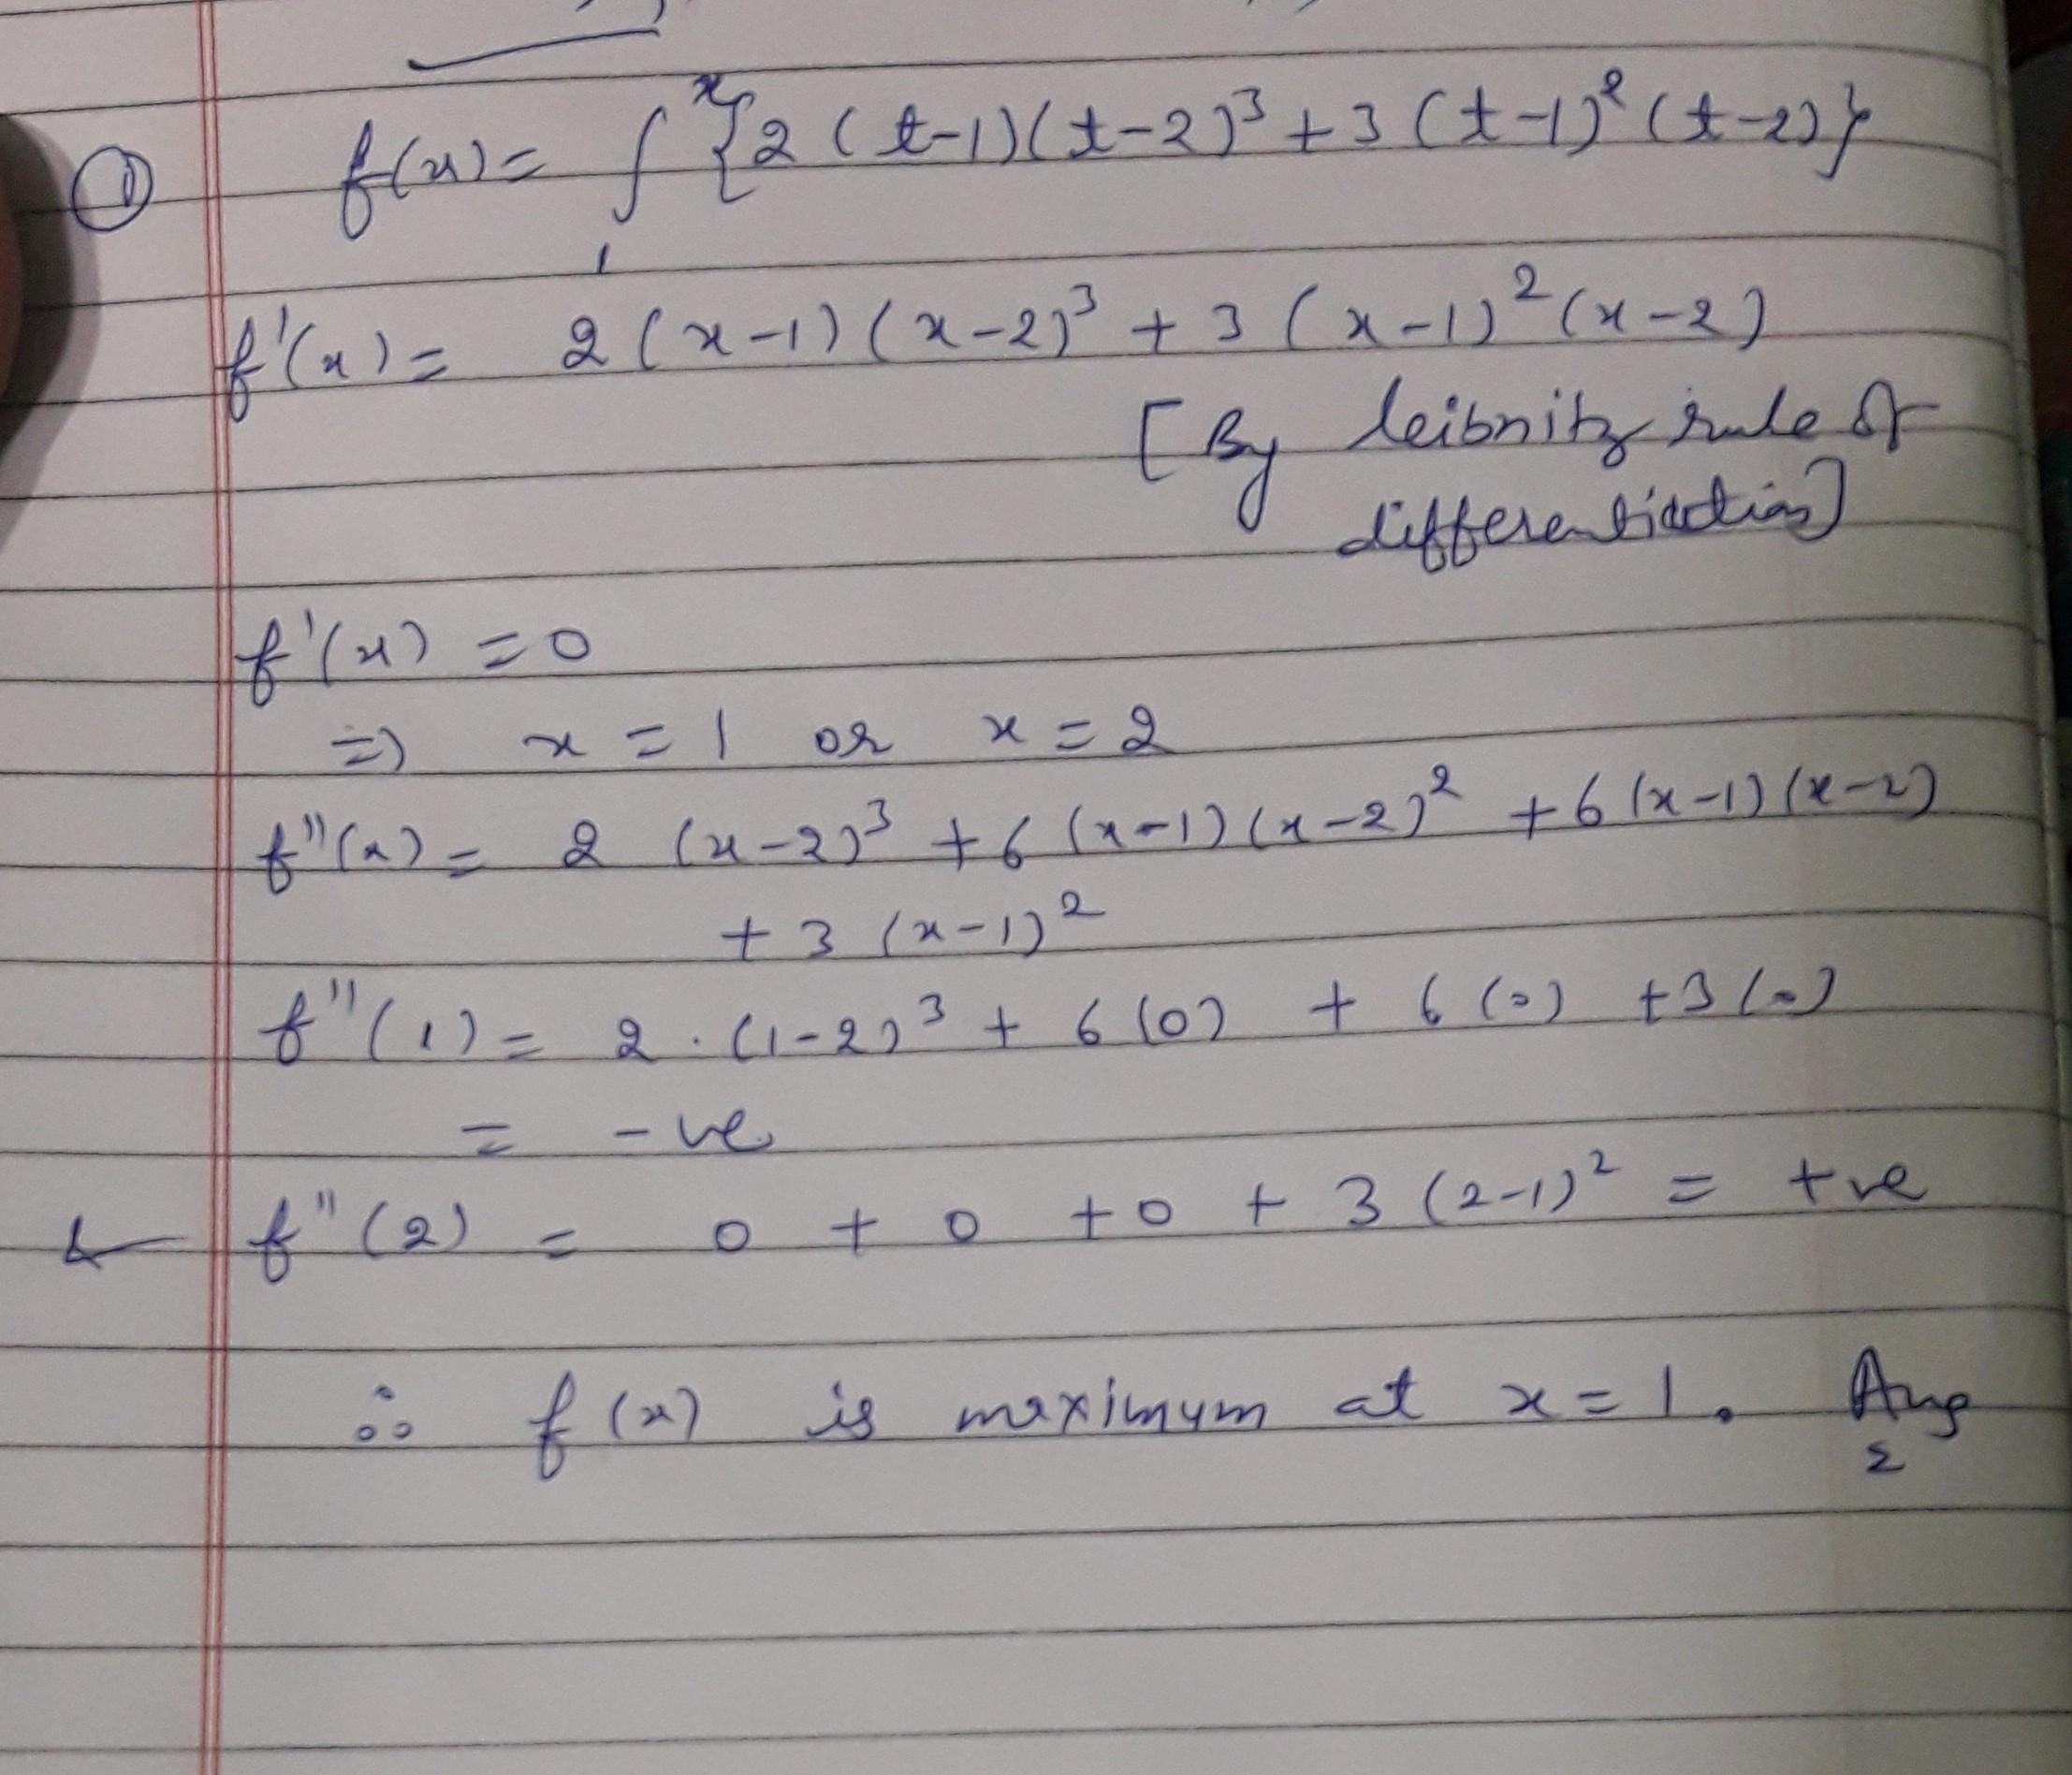 ① f(x) = ∫₁ˣ {2(t-1)(t-2)³ + 3(t-1)²(t-2)}
f'(x) = 2(x-1)(x-2)³ + 3(x-1)²(x-2)
[By leibnitz rule of
differentiation]
f'(x) = 0
⇒ x = 1 or x = 2
f''(x) = 2(x-2)³ + 6(x-1)(x-2)² + 6(x-1)(x-2)
+ 3(x-1)²
f''(1) = 2·(1-2)³ + 6(0) + 6(0) + 3(0)
= -ve
& f''(2) = 0 + 0 + 0 + 3(2-1)² = +ve
∴ f(x) is maximum at x = 1. Ans